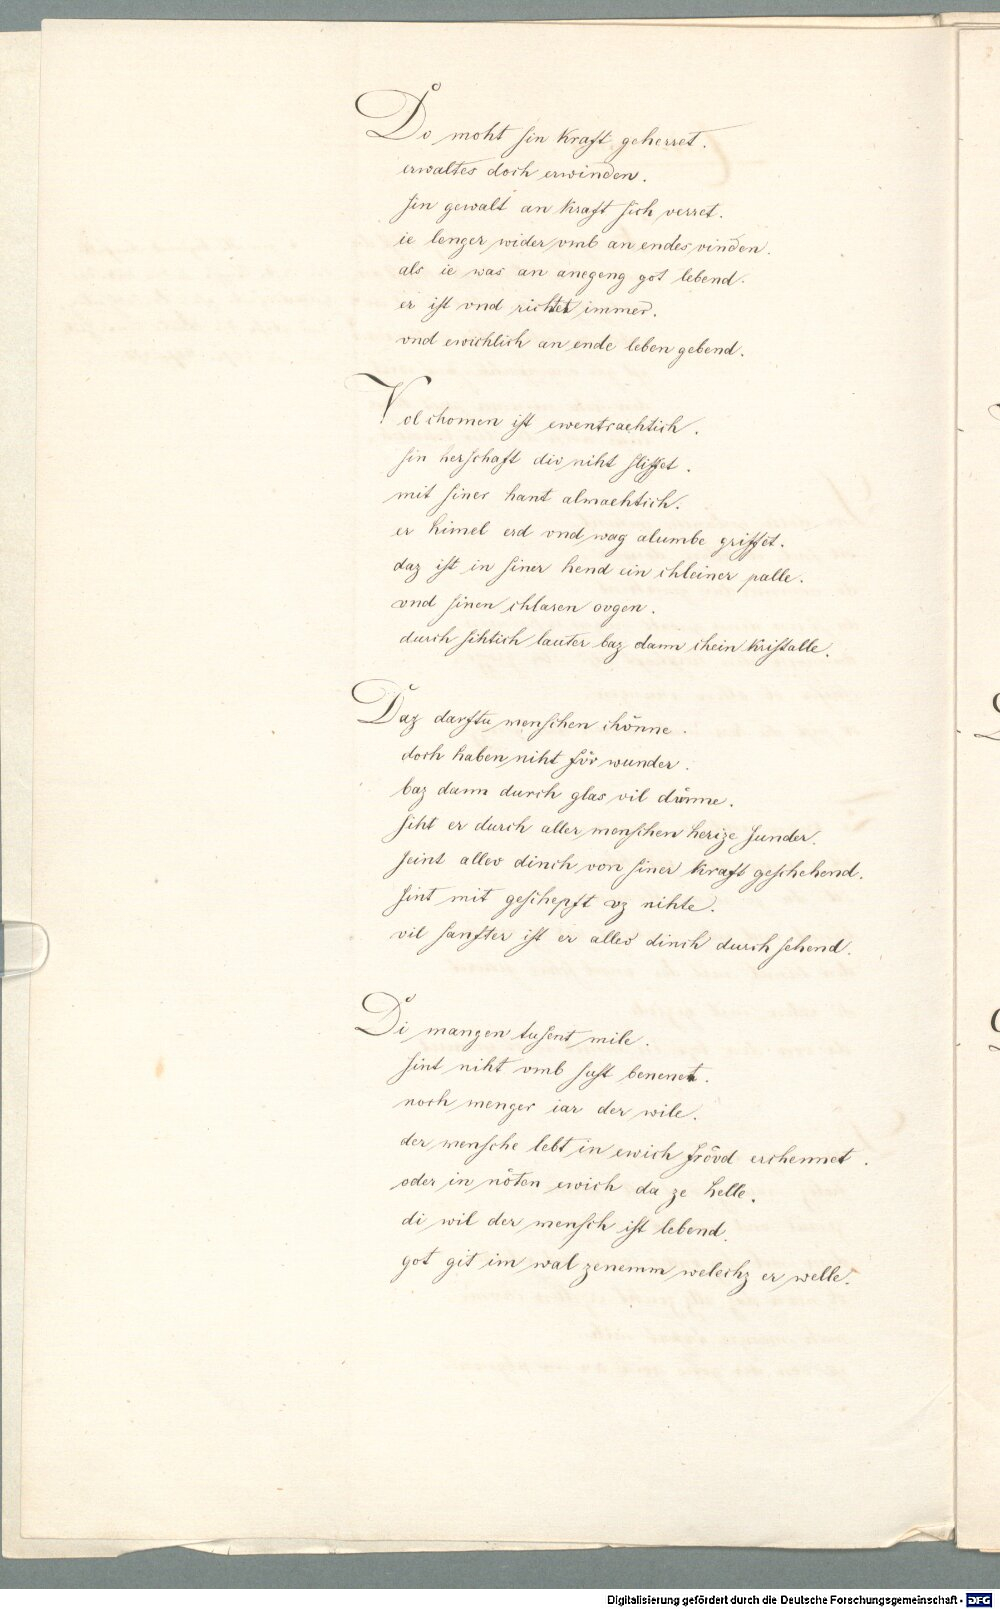 Do moht sin kraft geherret.
erwaltes doch erwinden.
sin gewalt an kraft sich verret.
ie lenger wider vmb an endes vinden.
als ie was an anegeng got lebend.
er ist vnd richtet immer.
vnd ewichlich an ende leben gebend.
Vol chomen ist ewentraehtich.
sin herschaft div niht sliffet.
mit siner hant almaehtich.
er himel erd vnd wag alumbe griffet.
daz ist in siner hend ein chleiner palle.
vnd sinen chlaren ovgen.
durch sihtich lauter baz dann chein kristalle.
Daz darftu menschen chönne.
doch haben niht för wunder.
baz dann durch glas vil dünne.
siht er durch aller menschen herize sunder.
seint allev dinch von siner kraft geschehend.
sint mit geschepft vz nihte.
vil sanfter ist er allev dinch durch sehend.
Di mangen tusent mile.
sint niht vmb sust benenet.
noch menger iar der wile.
der mensche lebt in ewich frövd erchennet.
oder in nöten ewich da ze helle.
di wil der mensch ist lebend.
got git im wal zenemm welechz er welle.
Digitalisierung gefördert durch die Deutsche Forschungsgemeinschaft - DFG